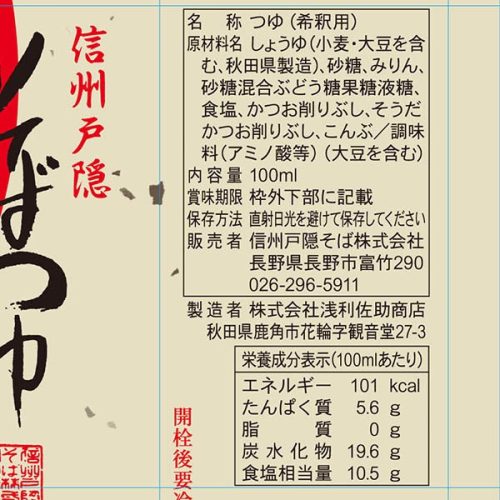 信州戸隠
そばつゆ
名 称 つゆ(希釈用)
原材料名 しょうゆ(小麦・大豆を含
む、秋田県製造)、砂糖、みりん、
砂糖混合ぶどう糖果糖液糖、
食塩、かつお削りぶし、そうだ
かつお削りぶし、こんぶ/調味
料(アミノ酸等)(大豆を含む)
内容量 100ml
賞味期限 枠外下部に記載
保存方法 直射日光を避けて保存してください
販売者 信州戸隠そば株式会社
長野県長野市富竹290
026-296-5911
製造者 株式会社浅利佐助商店
秋田県鹿角市花輪字観音堂27-3
栄養成分表示(100mlあたり)
エネルギー 101 kcal
たんぱく質 5.6 g
脂質 0 g
炭水化物 19.6 g
食塩相当量 10.5 g
開栓後要冷